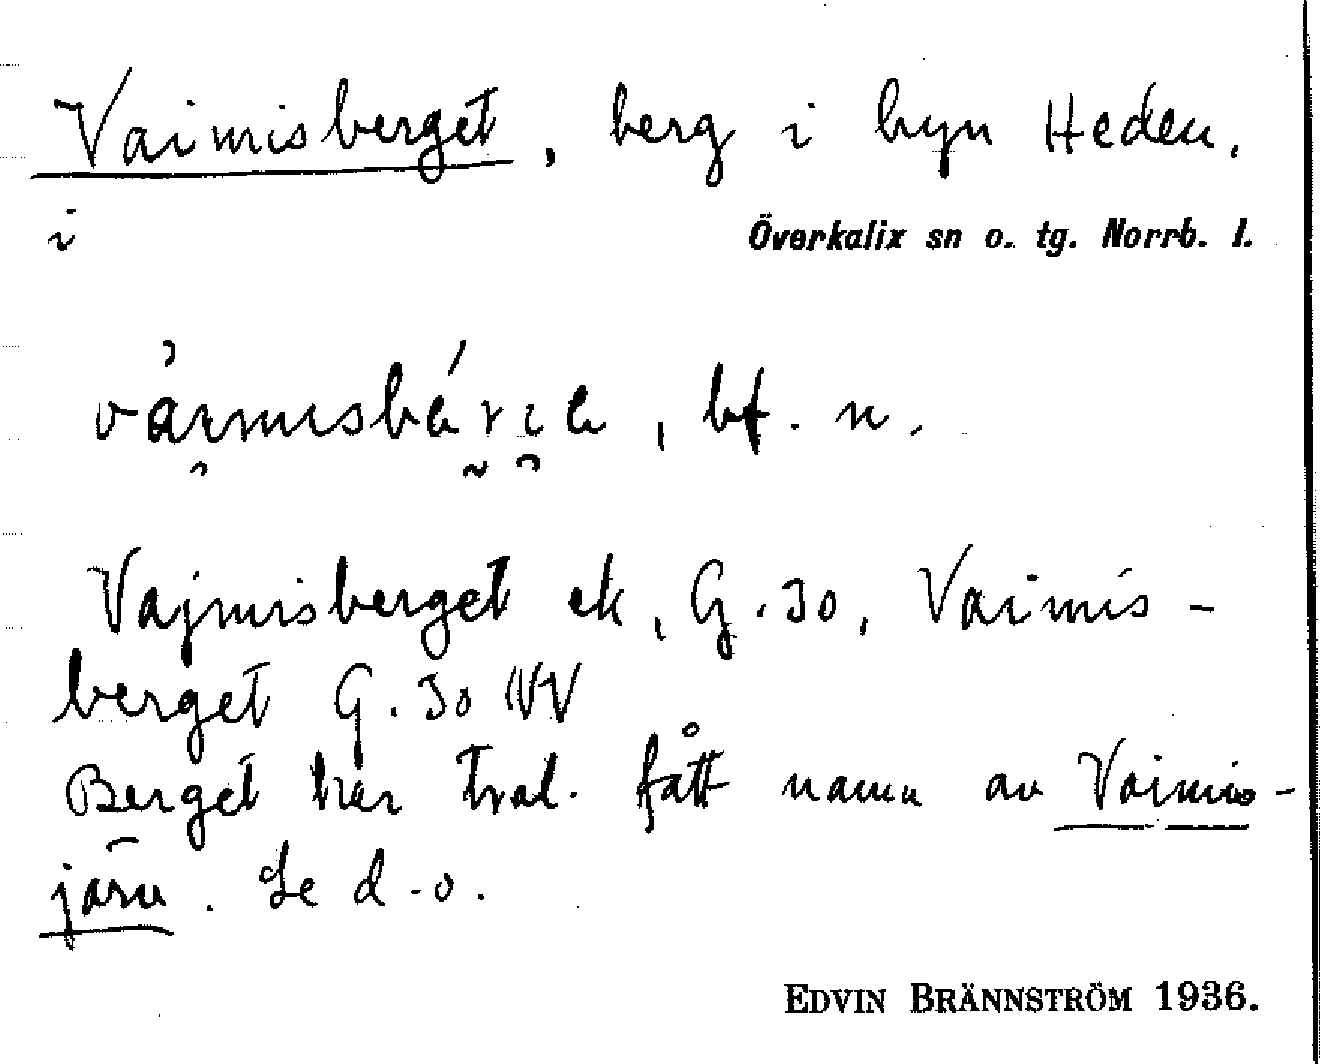 Vaimisberget, berg i byn Heden,
i Överkalix sn o. tg. Norrb. l.
bf. n.
Vajmisberget ek, G. 30, Vaimis-
berget G. 30 NV
Berget har trol. fått namn av Vaimis-
järv. Se d. o.
EDVIN BRÄNNSTRÖM 1936.